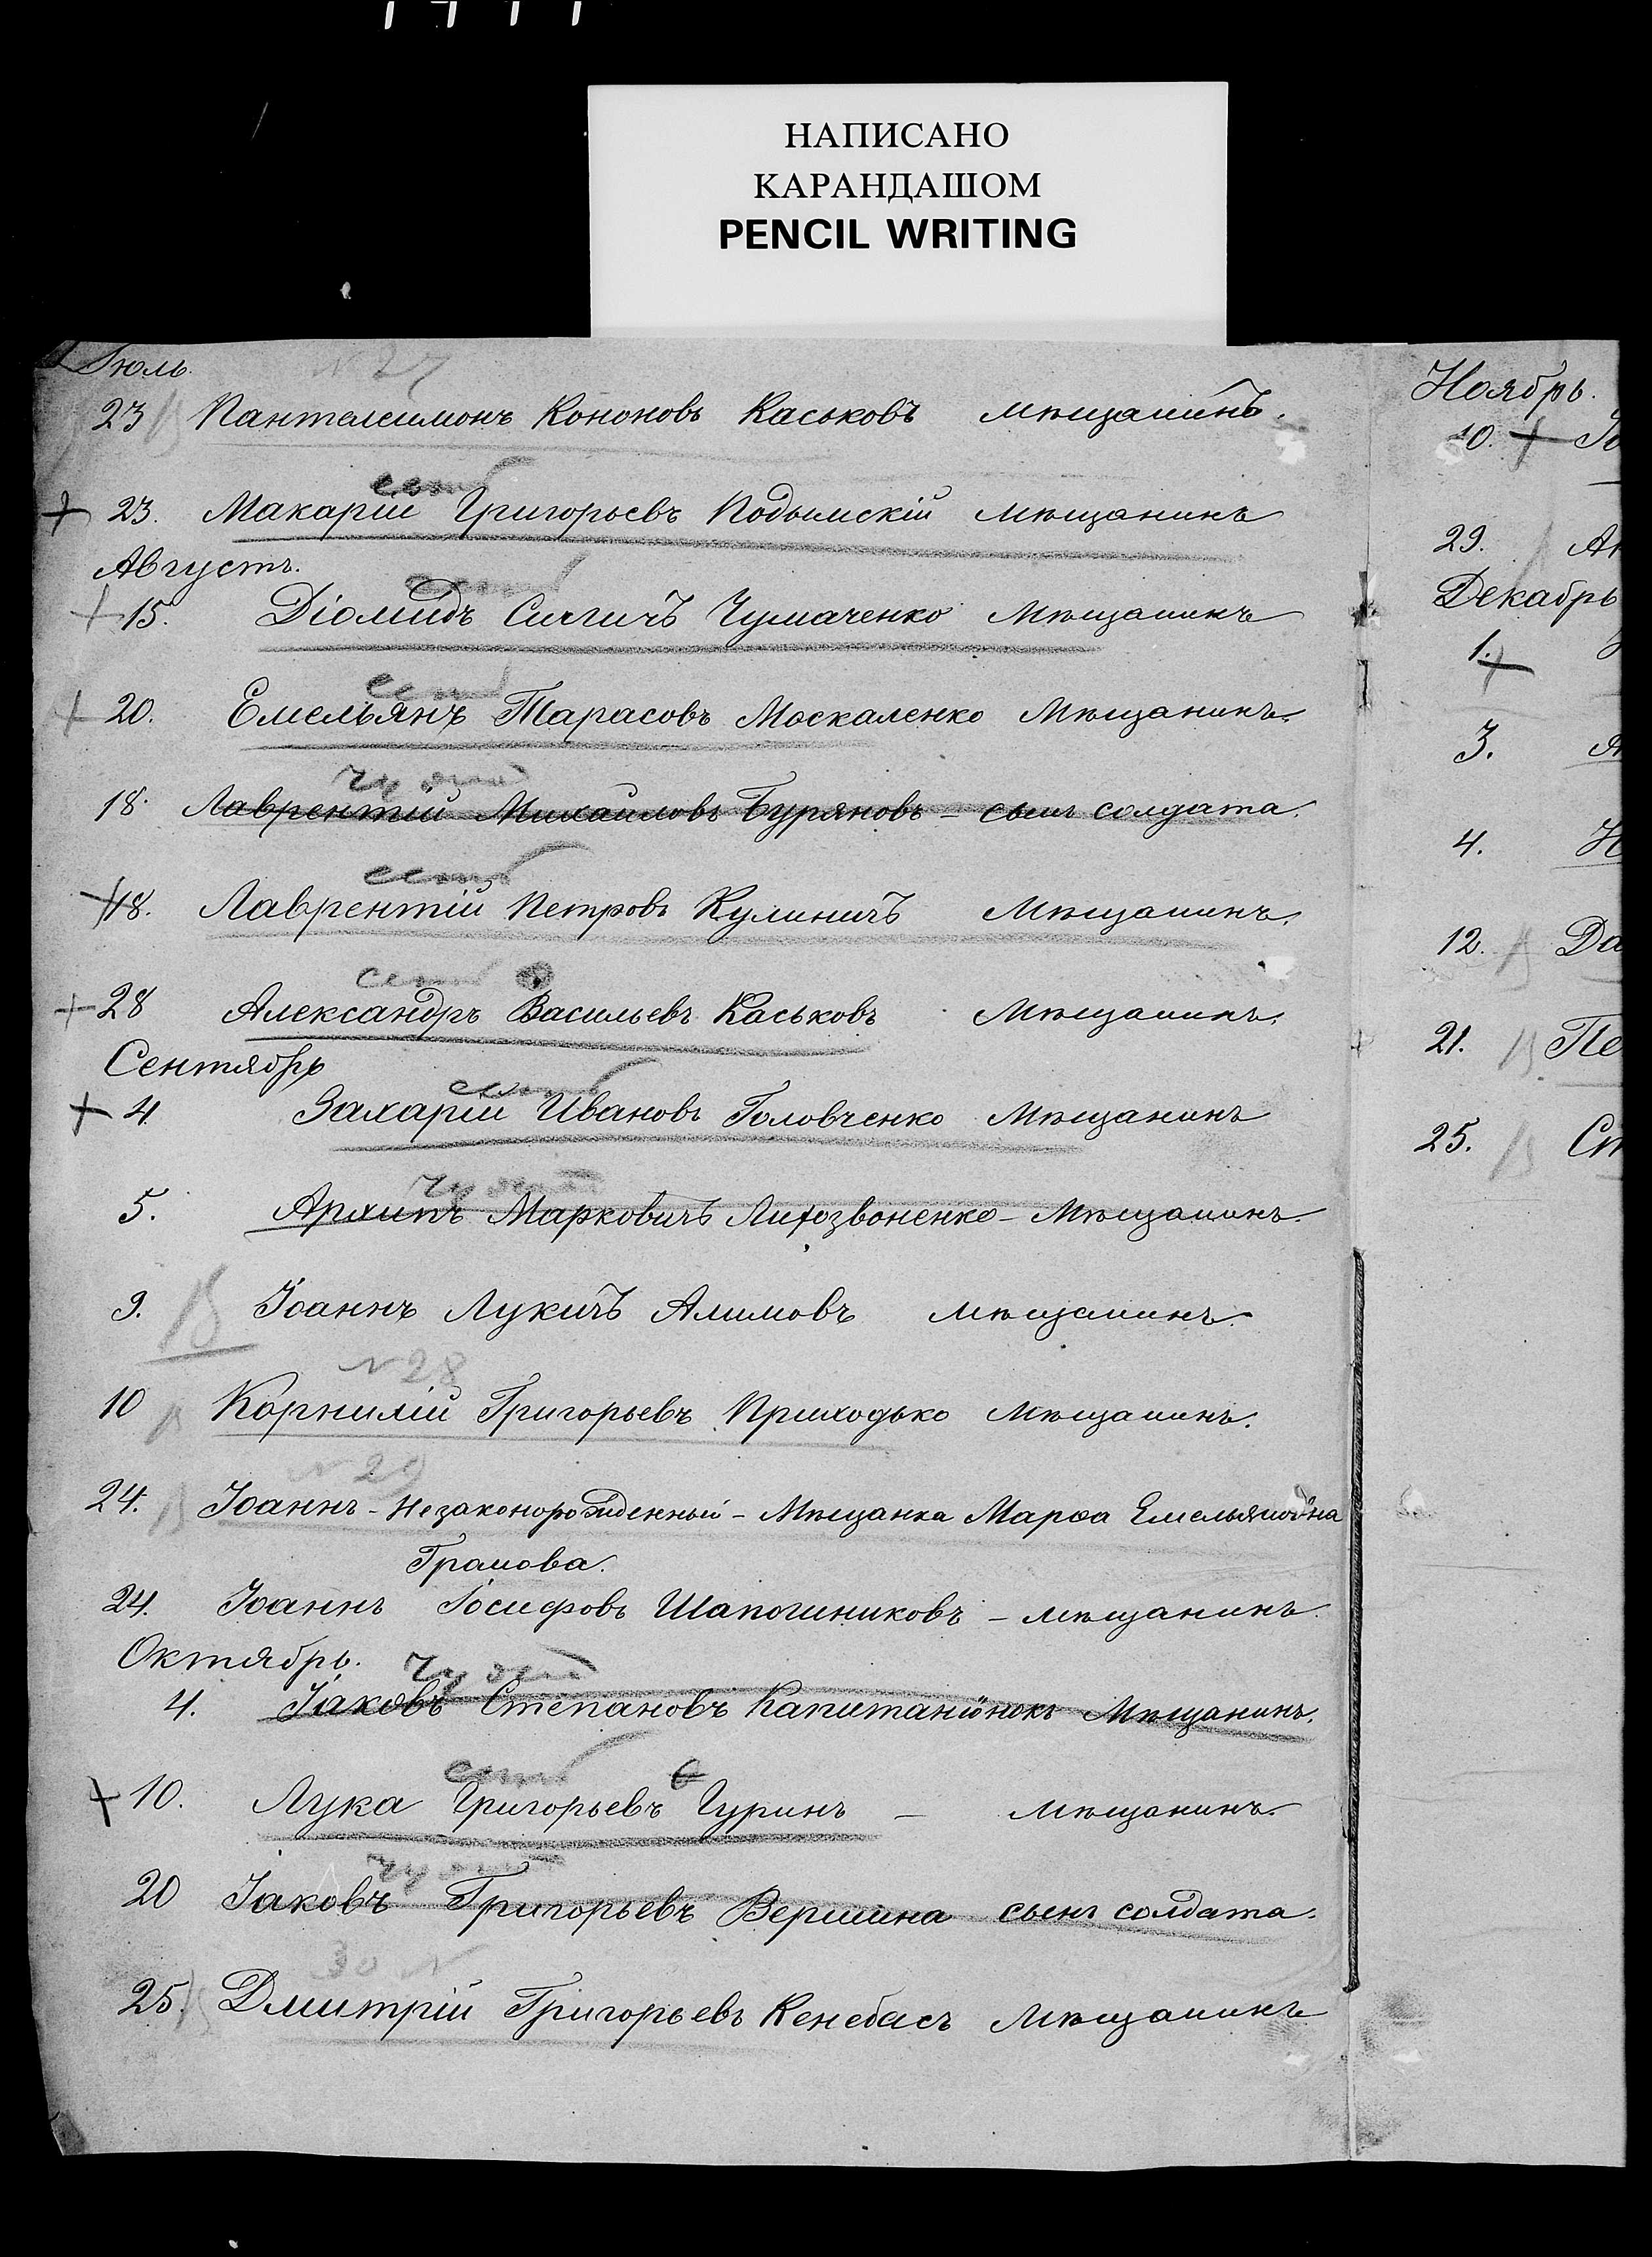 НАПИСАНО
КАРАНДАШОМ
PENCIL WRITING
Іюль.
N 27
23 Пантелеимонъ Кононовъ Каськовъ мѣщанинъ.
есть
+ 23. Макарій Григорьевъ Подымскій мѣщанинъ
Августъ.
есть
+ 15. Діомидъ Чумаченко Мѣщанинъ
есть
+ 20. Емельянъ Тарасовъ Москаленко Мѣщанинъ.
18. Лаврентій Михаиловъ Буряновъ - сынъ солдата.
есть
+ 18. Лаврентій Петровъ Кулиничъ Мѣщанинъ.
есть
+ 28 Александръ Васильевъ Каськовъ Мѣщанинъ.
Сентябрь
есть
+ 4. Захарій Ивановъ Головченко Мѣщанинъ
5. Архипъ Марковичъ Мѣщанинъ.
9. Іоаннъ Лукичъ Алимовъ мѣщанинъ.
N 28
10 Корнилій Григорьевъ Приходько Мѣщанинъ.
N 29
24. Іоаннъ - Незаконорожденный - Мѣщанка Марѳа Емельяновна
24. Іоаннъ Іосифовъ Шапошниковъ - мѣщанинъ.
Октябрь.
4. Іаковъ Степановъ Мѣщанинъ.
есть
+ 10. Лука Григорьевъ Гуринъ - мѣщанинъ.
20 Іаковъ Григорьевъ Вершина сынъ солдата.
30 N
25. Дмитрій Григорьевъ Кенебасъ Мѣщанинъ
Ноябрь.
10. + Іо
29. Ан
Декабрь
1. +
3.
4. Н
12. Да
21. Пе
25. Ст